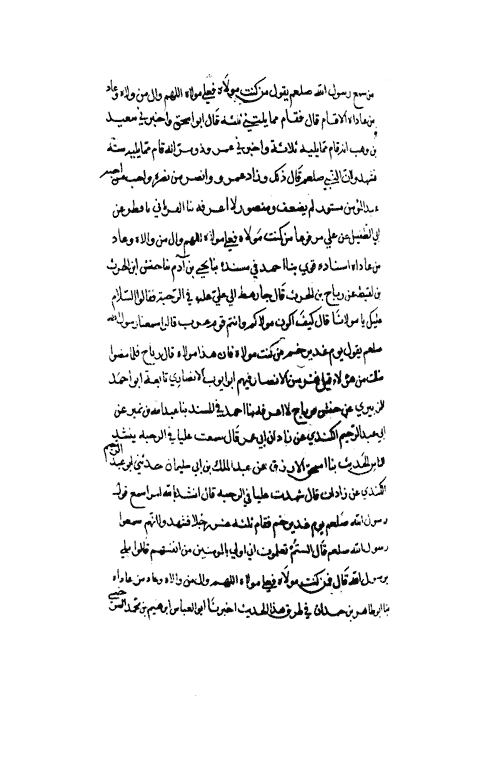 من سمع رسول الله صلعم يقول من كنت مولاه فعلي مولاه اللهم وال من والاه وعاد
من عاداه الا قام قال فقام مما يلتي ثلثة قال ابو اسحق واخبرني سعيد
بن وهب انه قام مما يليه ثلاثة واخبرني عمرو ذو مر انه قام مما يليه ستة
فشهدوا ان النبي صلعم قال ذلك وزاد عمرو وانصر من نصره واحب من احبه
عبد المؤمن مستور لم يضعف ومنصور لا اعرفه نا الفريابي نا فطر عن
ابي الطفيل عن علي مرفوعا من كنت مولاه فعلي مولاه اللهم وال من والاه وعاد
من عاداه اسناده قوي نا احمد في مسنده نا يحيى بن آدم نا حنش بن الحرث
بن لقيط عن رياح بن الحرث قال جا رهط الى علي عليه في الرحبة فقالوا السلام
عليك يا مولانا قال كيف اكون مولاكم وانتم قوم عرب قالوا سمعنا رسول الله
صلعم يقول يوم غدير خم من كنت مولاه فان هذا مولاه قال رياح فلما مضوا
قلت من هؤلاء قيل نفر من الانصار فيهم ابو ايوب الانصاري تابعه ابو احمد
الزبيري عن حنش ورياح لا اعرفه نا احمد في المسند نا عبد الله بن نمير عن
ابي عبد الرحيم الكندي عن زاذان ابي عمر قال سمعت عليا في الرحبة ينشد
الناس الحديث نا اسحق الازرق عن عبد الملك بن ابي سليمان حدثني ابو عبد الرحيم
الكندي عن زاذان قال شهدت عليا في الرحبة قال انشد الله امرا سمع قول
رسول الله صلعم يوم غدير خم فقام ثلثة عشر رجلا فشهدوا انهم سمعوا
رسول الله صلعم قال الستم تعلمون اني اولى بالمومنين من انفسهم قالوا بلى
يرسول الله قال فمن كنت مولاه فعلي مولاه اللهم وال من والاه وعاد من عاداه
نا ابو طاهر بن حمدان في طرق هذا الحديث اخبرنا ابو العباس ابرهيم بن محمد